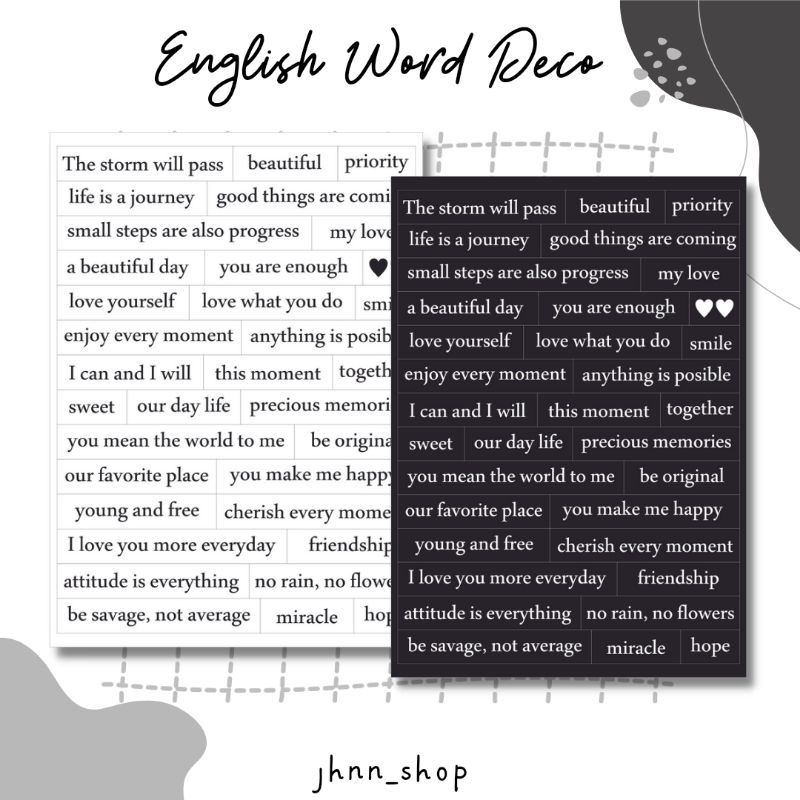 English Word Deco
The storm will pass beautiful priority
life is a journey good things are comi
small steps are also progress my love
a beautiful day you are enough
love yourself love what you do smi
enjoy every moment anything is posib
I can and I will this moment togeth
sweet our day life precious memori
you mean the world to me be origina
our favorite place you make me happy
young and free cherish every mome
I love you more everyday friendship
attitude is everything no rain, no flowe
be savage, not average miracle hop
The storm will pass beautiful priority
life is a journey good things are coming
small steps are also progress my love
a beautiful day you are enough
love yourself love what you do smile
enjoy every moment anything is posible
I can and I will this moment together
sweet our day life precious memories
you mean the world to me be original
our favorite place you make me happy
young and free cherish every moment
I love you more everyday friendship
attitude is everything no rain, no flowers
be savage, not average miracle hope
jhnn_shop